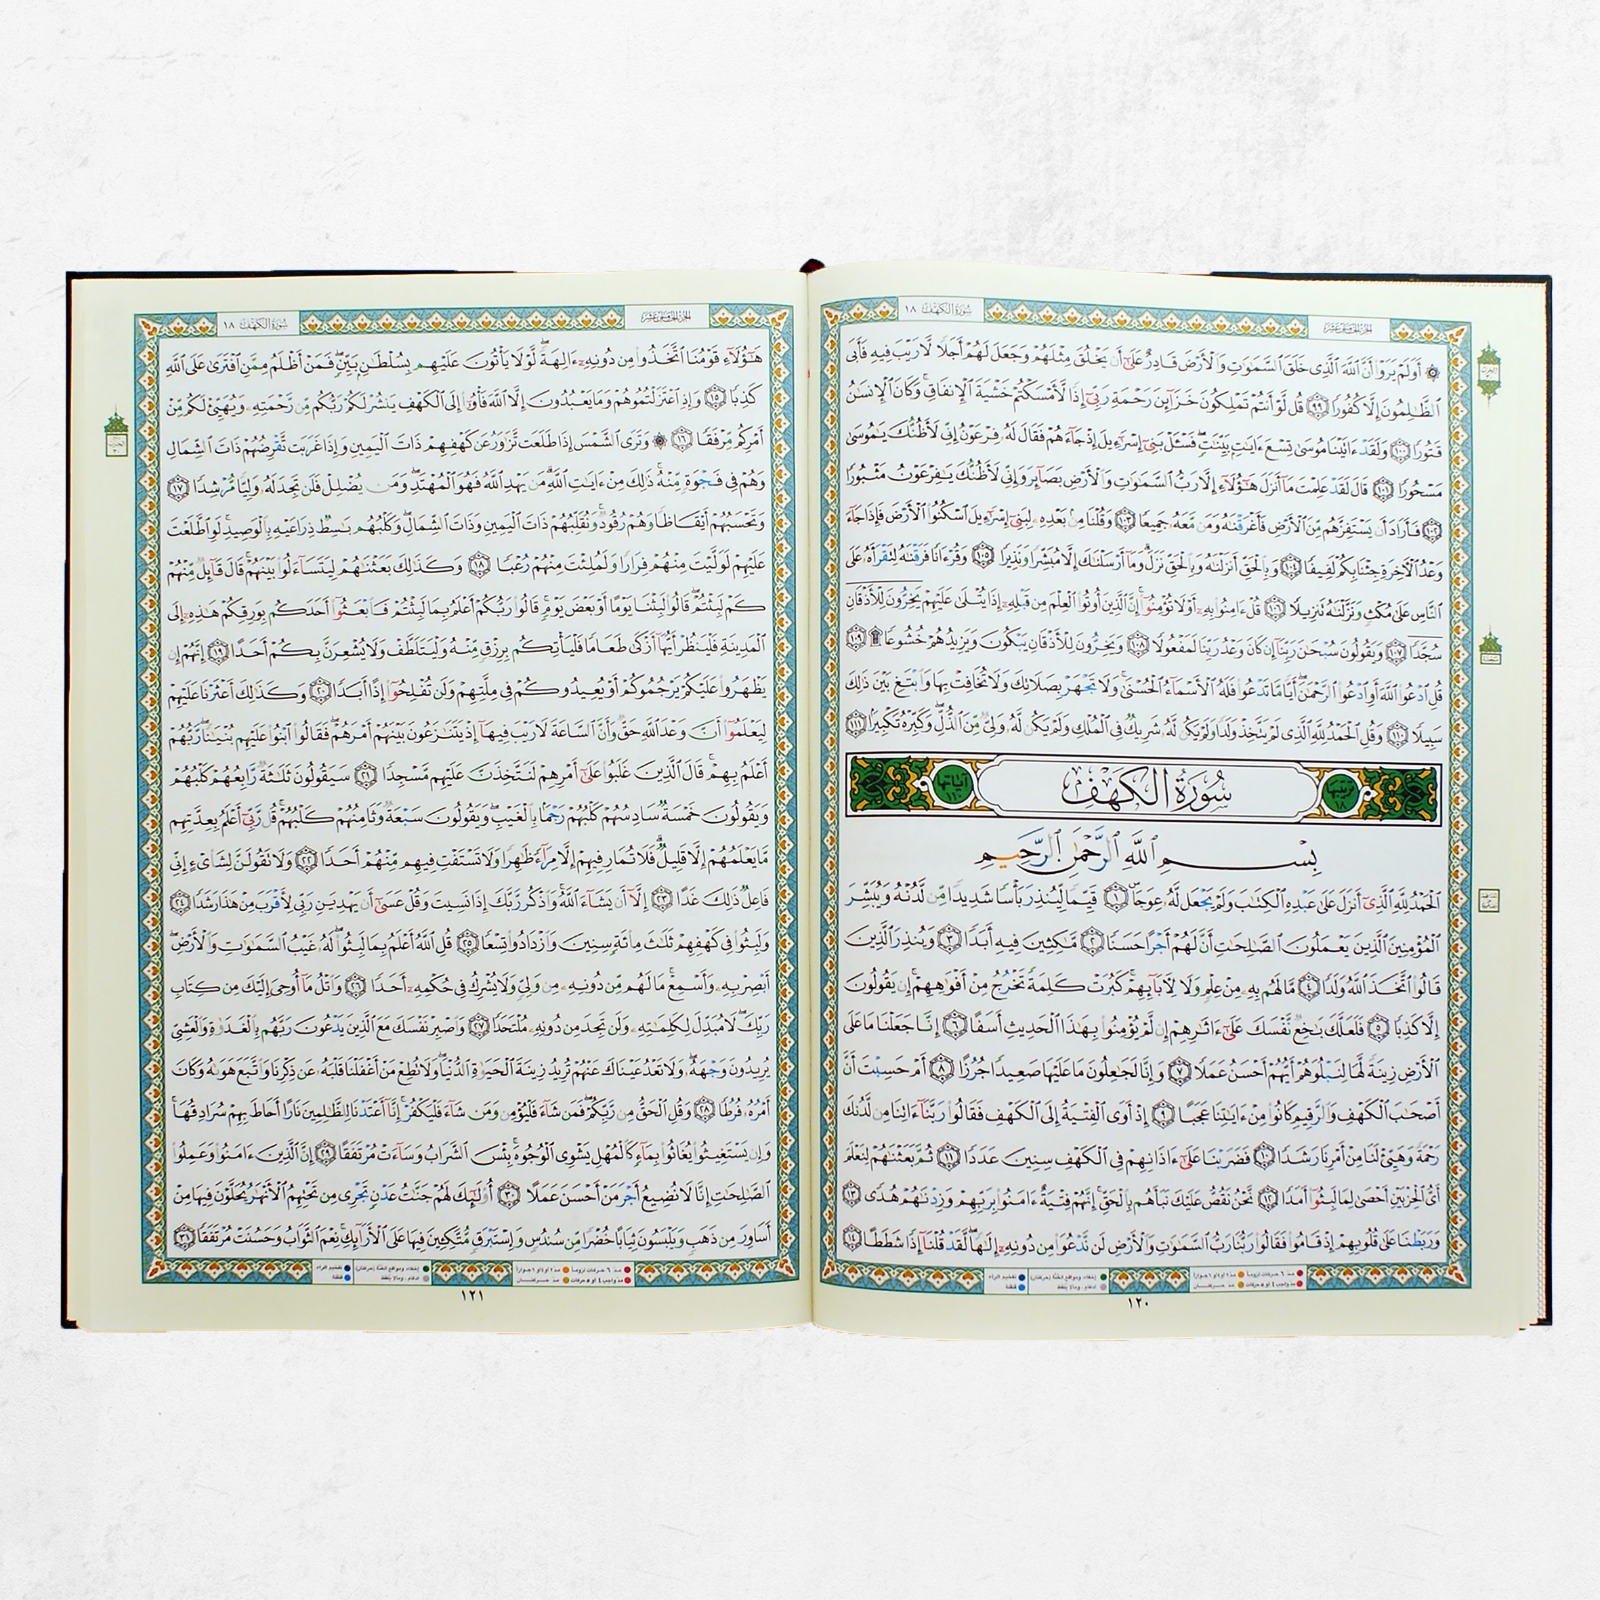 سورة الكهف ١٨
۞ أَوَلَمْ يَرَوْا۟ أَنَّ ٱللَّهَ ٱلَّذِى خَلَقَ ٱلسَّمَٰوَٰتِ وَٱلْأَرْضَ قَادِرٌ عَلَىٰٓ أَن يَخْلُقَ مِثْلَهُمْ وَجَعَلَ لَهُمْ أَجَلًا لَّا رَيْبَ فِيهِ فَأَبَى
ٱلظَّٰلِمُونَ إِلَّا كُفُورًا ٩٩ قُل لَّوْ أَنتُمْ تَمْلِكُونَ خَزَآئِنَ رَحْمَةِ رَبِّىٓ إِذًا لَّأَمْسَكْتُمْ خَشْيَةَ ٱلْإِنفَاقِ ۚ وَكَانَ ٱلْإِنسَٰنُ
قَتُورًا ١٠٠ وَلَقَدْ ءَاتَيْنَا مُوسَىٰ تِسْعَ ءَايَٰتٍۭ بَيِّنَٰتٍ ۖ فَسْـَٔلْ بَنِىٓ إِسْرَٰٓءِيلَ إِذْ جَآءَهُمْ فَقَالَ لَهُۥ فِرْعَوْنُ إِنِّى لَأَظُنُّكَ يَٰمُوسَىٰ
مَسْحُورًا ١٠١ قَالَ لَقَدْ عَلِمْتَ مَآ أَنزَلَ هَٰٓؤُلَآءِ إِلَّا رَبُّ ٱلسَّمَٰوَٰتِ وَٱلْأَرْضِ بَصَآئِرَ وَإِنِّى لَأَظُنُّكَ يَٰفِرْعَوْنُ مَثْبُورًا
١٠٢ فَأَرَادَ أَن يَسْتَفِزَّهُم مِّنَ ٱلْأَرْضِ فَأَغْرَقْنَٰهُ وَمَن مَّعَهُۥ جَمِيعًا ١٠٣ وَقُلْنَا مِنۢ بَعْدِهِۦ لِبَنِىٓ إِسْرَٰٓءِيلَ ٱسْكُنُوا۟ ٱلْأَرْضَ فَإِذَا جَآءَ
وَعْدُ ٱلْءَاخِرَةِ جِئْنَا بِكُمْ لَفِيفًا ١٠٤ وَبِٱلْحَقِّ أَنزَلْنَٰهُ وَبِٱلْحَقِّ نَزَلَ ۗ وَمَآ أَرْسَلْنَٰكَ إِلَّا مُبَشِّرًا وَنَذِيرًا ١٠٥ وَقُرْءَانًا فَرَقْنَٰهُ لِتَقْرَأَهُۥ عَلَى
ٱلنَّاسِ عَلَىٰ مُكْثٍ وَنَزَّلْنَٰهُ تَنزِيلًا ١٠٦ قُلْ ءَامِنُوا۟ بِهِۦٓ أَوْ لَا تُؤْمِنُوٓا۟ ۚ إِنَّ ٱلَّذِينَ أُوتُوا۟ ٱلْعِلْمَ مِن قَبْلِهِۦٓ إِذَا يُتْلَىٰ عَلَيْهِمْ يَخِرُّونَ لِلْأَذْقَانِ
سُجَّدًا ١٠٧ وَيَقُولُونَ سُبْحَٰنَ رَبِّنَآ إِن كَانَ وَعْدُ رَبِّنَا لَمَفْعُولًا ١٠٨ وَيَخِرُّونَ لِلْأَذْقَانِ يَبْكُونَ وَيَزِيدُهُمْ خُشُوعًا ۩ ١٠٩
قُلِ ٱدْعُوا۟ ٱللَّهَ أَوِ ٱدْعُوا۟ ٱلرَّحْمَٰنَ ۖ أَيًّا مَّا تَدْعُوا۟ فَلَهُ ٱلْأَسْمَآءُ ٱلْحُسْنَىٰ ۚ وَلَا تَجْهَرْ بِصَلَاتِكَ وَلَا تُخَافِتْ بِهَا وَٱبْتَغِ بَيْنَ ذَٰلِكَ
سَبِيلًا ١١٠ وَقُلِ ٱلْحَمْدُ لِلَّهِ ٱلَّذِى لَمْ يَتَّخِذْ وَلَدًا وَلَمْ يَكُن لَّهُۥ شَرِيكٌ فِى ٱلْمُلْكِ وَلَمْ يَكُن لَّهُۥ وَلِىٌّ مِّنَ ٱلذُّلِّ ۖ وَكَبِّرْهُ تَكْبِيرًۢا ١١١
ترتيبها ١٨ سُورَةُ الكَهْفِ آياتها ١١٠
بِسْمِ ٱللَّهِ ٱلرَّحْمَٰنِ ٱلرَّحِيمِ
ٱلْحَمْدُ لِلَّهِ ٱلَّذِىٓ أَنزَلَ عَلَىٰ عَبْدِهِ ٱلْكِتَٰبَ وَلَمْ يَجْعَل لَّهُۥ عِوَجَا ۜ ١ قَيِّمًا لِّيُنذِرَ بَأْسًا شَدِيدًا مِّن لَّدُنْهُ وَيُبَشِّرَ
ٱلْمُؤْمِنِينَ ٱلَّذِينَ يَعْمَلُونَ ٱلصَّٰلِحَٰتِ أَنَّ لَهُمْ أَجْرًا حَسَنًا ٢ مَّٰكِثِينَ فِيهِ أَبَدًا ٣ وَيُنذِرَ ٱلَّذِينَ
قَالُوا۟ ٱتَّخَذَ ٱللَّهُ وَلَدًا ٤ مَّا لَهُم بِهِۦ مِنْ عِلْمٍ وَلَا لِءَابَآئِهِمْ ۚ كَبُرَتْ كَلِمَةً تَخْرُجُ مِنْ أَفْوَٰهِهِمْ ۚ إِن يَقُولُونَ
إِلَّا كَذِبًا ٥ فَلَعَلَّكَ بَٰخِعٌ نَّفْسَكَ عَلَىٰٓ ءَاثَٰرِهِمْ إِن لَّمْ يُؤْمِنُوا۟ بِهَٰذَا ٱلْحَدِيثِ أَسَفًا ٦ إِنَّا جَعَلْنَا مَا عَلَى
ٱلْأَرْضِ زِينَةً لَّهَا لِنَبْلُوَهُمْ أَيُّهُمْ أَحْسَنُ عَمَلًا ٧ وَإِنَّا لَجَٰعِلُونَ مَا عَلَيْهَا صَعِيدًا جُرُزًا ٨ أَمْ حَسِبْتَ أَنَّ
أَصْحَٰبَ ٱلْكَهْفِ وَٱلرَّقِيمِ كَانُوا۟ مِنْ ءَايَٰتِنَا عَجَبًا ٩ إِذْ أَوَى ٱلْفِتْيَةُ إِلَى ٱلْكَهْفِ فَقَالُوا۟ رَبَّنَآ ءَاتِنَا مِن لَّدُنكَ
رَحْمَةً وَهَيِّئْ لَنَا مِنْ أَمْرِنَا رَشَدًا ١٠ فَضَرَبْنَا عَلَىٰٓ ءَاذَانِهِمْ فِى ٱلْكَهْفِ سِنِينَ عَدَدًا ١١ ثُمَّ بَعَثْنَٰهُمْ لِنَعْلَمَ
أَىُّ ٱلْحِزْبَيْنِ أَحْصَىٰ لِمَا لَبِثُوٓا۟ أَمَدًا ١٢ نَّحْنُ نَقُصُّ عَلَيْكَ نَبَأَهُم بِٱلْحَقِّ ۚ إِنَّهُمْ فِتْيَةٌ ءَامَنُوا۟ بِرَبِّهِمْ وَزِدْنَٰهُمْ هُدًى ١٣
وَرَبَطْنَا عَلَىٰ قُلُوبِهِمْ إِذْ قَامُوا۟ فَقَالُوا۟ رَبُّنَا رَبُّ ٱلسَّمَٰوَٰتِ وَٱلْأَرْضِ لَن نَّدْعُوَا۟ مِن دُونِهِۦٓ إِلَٰهًا ۖ لَّقَدْ قُلْنَآ إِذًا شَطَطًا ١٤
١٢٠
سورة الكهف ١٨
هَٰٓؤُلَآءِ قَوْمُنَا ٱتَّخَذُوا۟ مِن دُونِهِۦٓ ءَالِهَةً ۖ لَّوْلَا يَأْتُونَ عَلَيْهِم بِسُلْطَٰنٍۭ بَيِّنٍ ۖ فَمَنْ أَظْلَمُ مِمَّنِ ٱفْتَرَىٰ عَلَى ٱللَّهِ
كَذِبًا ١٥ وَإِذِ ٱعْتَزَلْتُمُوهُمْ وَمَا يَعْبُدُونَ إِلَّا ٱللَّهَ فَأْوُۥٓا۟ إِلَى ٱلْكَهْفِ يَنشُرْ لَكُمْ رَبُّكُم مِّن رَّحْمَتِهِۦ وَيُهَيِّئْ لَكُم مِّنْ
أَمْرِكُم مِّرْفَقًا ١٦ ۞ وَتَرَى ٱلشَّمْسَ إِذَا طَلَعَت تَّزَٰوَرُ عَن كَهْفِهِمْ ذَاتَ ٱلْيَمِينِ وَإِذَا غَرَبَت تَّقْرِضُهُمْ ذَاتَ ٱلشِّمَالِ
وَهُمْ فِى فَجْوَةٍ مِّنْهُ ۚ ذَٰلِكَ مِنْ ءَايَٰتِ ٱللَّهِ ۗ مَن يَهْدِ ٱللَّهُ فَهُوَ ٱلْمُهْتَدِ ۖ وَمَن يُضْلِلْ فَلَن تَجِدَ لَهُۥ وَلِيًّا مُّرْشِدًا ١٧
وَتَحْسَبُهُمْ أَيْقَاظًا وَهُمْ رُقُودٌ ۚ وَنُقَلِّبُهُمْ ذَاتَ ٱلْيَمِينِ وَذَاتَ ٱلشِّمَالِ ۖ وَكَلْبُهُم بَٰسِطٌ ذِرَاعَيْهِ بِٱلْوَصِيدِ ۚ لَوِ ٱطَّلَعْتَ
عَلَيْهِمْ لَوَلَّيْتَ مِنْهُمْ فِرَارًا وَلَمُلِئْتَ مِنْهُمْ رُعْبًا ١٨ وَكَذَٰلِكَ بَعَثْنَٰهُمْ لِيَتَسَآءَلُوا۟ بَيْنَهُمْ ۚ قَالَ قَآئِلٌ مِّنْهُمْ
كَمْ لَبِثْتُمْ ۖ قَالُوا۟ لَبِثْنَا يَوْمًا أَوْ بَعْضَ يَوْمٍ ۚ قَالُوا۟ رَبُّكُمْ أَعْلَمُ بِمَا لَبِثْتُمْ فَٱبْعَثُوٓا۟ أَحَدَكُم بِوَرِقِكُمْ هَٰذِهِۦٓ إِلَى
ٱلْمَدِينَةِ فَلْيَنظُرْ أَيُّهَآ أَزْكَىٰ طَعَامًا فَلْيَأْتِكُم بِرِزْقٍ مِّنْهُ وَلْيَتَلَطَّفْ وَلَا يُشْعِرَنَّ بِكُمْ أَحَدًا ١٩ إِنَّهُمْ إِن
يَظْهَرُوا۟ عَلَيْكُمْ يَرْجُمُوكُمْ أَوْ يُعِيدُوكُمْ فِى مِلَّتِهِمْ وَلَن تُفْلِحُوٓا۟ إِذًا أَبَدًا ٢٠ وَكَذَٰلِكَ أَعْثَرْنَا عَلَيْهِمْ
لِيَعْلَمُوٓا۟ أَنَّ وَعْدَ ٱللَّهِ حَقٌّ وَأَنَّ ٱلسَّاعَةَ لَا رَيْبَ فِيهَآ إِذْ يَتَنَٰزَعُونَ بَيْنَهُمْ أَمْرَهُمْ ۖ فَقَالُوا۟ ٱبْنُوا۟ عَلَيْهِم بُنْيَٰنًا ۖ رَّبُّهُمْ
أَعْلَمُ بِهِمْ ۚ قَالَ ٱلَّذِينَ غَلَبُوا۟ عَلَىٰٓ أَمْرِهِمْ لَنَتَّخِذَنَّ عَلَيْهِم مَّسْجِدًا ٢١ سَيَقُولُونَ ثَلَٰثَةٌ رَّابِعُهُمْ كَلْبُهُمْ
وَيَقُولُونَ خَمْسَةٌ سَادِسُهُمْ كَلْبُهُمْ رَجْمًۢا بِٱلْغَيْبِ ۖ وَيَقُولُونَ سَبْعَةٌ وَثَامِنُهُمْ كَلْبُهُمْ ۚ قُل رَّبِّىٓ أَعْلَمُ بِعِدَّتِهِم
مَّا يَعْلَمُهُمْ إِلَّا قَلِيلٌ ۗ فَلَا تُمَارِ فِيهِمْ إِلَّا مِرَآءً ظَٰهِرًا وَلَا تَسْتَفْتِ فِيهِم مِّنْهُمْ أَحَدًا ٢٢ وَلَا تَقُولَنَّ لِشَا۟ىْءٍ إِنِّى
فَاعِلٌ ذَٰلِكَ غَدًا ٢٣ إِلَّآ أَن يَشَآءَ ٱللَّهُ ۚ وَٱذْكُر رَّبَّكَ إِذَا نَسِيتَ وَقُلْ عَسَىٰٓ أَن يَهْدِيَنِ رَبِّى لِأَقْرَبَ مِنْ هَٰذَا رَشَدًا ٢٤
وَلَبِثُوا۟ فِى كَهْفِهِمْ ثَلَٰثَ مِا۟ئَةٍ سِنِينَ وَٱزْدَادُوا۟ تِسْعًا ٢٥ قُلِ ٱللَّهُ أَعْلَمُ بِمَا لَبِثُوا۟ ۖ لَهُۥ غَيْبُ ٱلسَّمَٰوَٰتِ وَٱلْأَرْضِ ۖ
أَبْصِرْ بِهِۦ وَأَسْمِعْ ۚ مَا لَهُم مِّن دُونِهِۦ مِن وَلِىٍّ وَلَا يُشْرِكُ فِى حُكْمِهِۦٓ أَحَدًا ٢٦ وَٱتْلُ مَآ أُوحِىَ إِلَيْكَ مِن كِتَابِ
رَبِّكَ ۖ لَا مُبَدِّلَ لِكَلِمَٰتِهِۦ وَلَن تَجِدَ مِن دُونِهِۦ مُلْتَحَدًا ٢٧ وَٱصْبِرْ نَفْسَكَ مَعَ ٱلَّذِينَ يَدْعُونَ رَبَّهُم بِٱلْغَدَوٰةِ وَٱلْعَشِىِّ
يُرِيدُونَ وَجْهَهُۥ ۖ وَلَا تَعْدُ عَيْنَاكَ عَنْهُمْ تُرِيدُ زِينَةَ ٱلْحَيَوٰةِ ٱلدُّنْيَا ۖ وَلَا تُطِعْ مَنْ أَغْفَلْنَا قَلْبَهُۥ عَن ذِكْرِنَا وَٱتَّبَعَ هَوَىٰهُ وَكَانَ
أَمْرُهُۥ فُرُطًا ٢٨ وَقُلِ ٱلْحَقُّ مِن رَّبِّكُمْ ۖ فَمَن شَآءَ فَلْيُؤْمِن وَمَن شَآءَ فَلْيَكْفُرْ ۚ إِنَّآ أَعْتَدْنَا لِلظَّٰلِمِينَ نَارًا أَحَاطَ بِهِمْ سُرَادِقُهَا ۚ
وَإِن يَسْتَغِيثُوا۟ يُغَاثُوا۟ بِمَآءٍ كَٱلْمُهْلِ يَشْوِى ٱلْوُجُوهَ ۚ بِئْسَ ٱلشَّرَابُ وَسَآءَتْ مُرْتَفَقًا ٢٩ إِنَّ ٱلَّذِينَ ءَامَنُوا۟ وَعَمِلُوا۟
ٱلصَّٰلِحَٰتِ إِنَّا لَا نُضِيعُ أَجْرَ مَنْ أَحْسَنَ عَمَلًا ٣٠ أُو۟لَٰٓئِكَ لَهُمْ جَنَّٰتُ عَدْنٍ تَجْرِى مِن تَحْتِهِمُ ٱلْأَنْهَٰرُ يُحَلَّوْنَ فِيهَا مِنْ
أَسَاوِرَ مِن ذَهَبٍ وَيَلْبَسُونَ ثِيَابًا خُضْرًا مِّن سُندُسٍ وَإِسْتَبْرَقٍ مُّتَّكِـِٔينَ فِيهَا عَلَى ٱلْأَرَآئِكِ ۚ نِعْمَ ٱلثَّوَابُ وَحَسُنَتْ مُرْتَفَقًا ٣١
١٢١